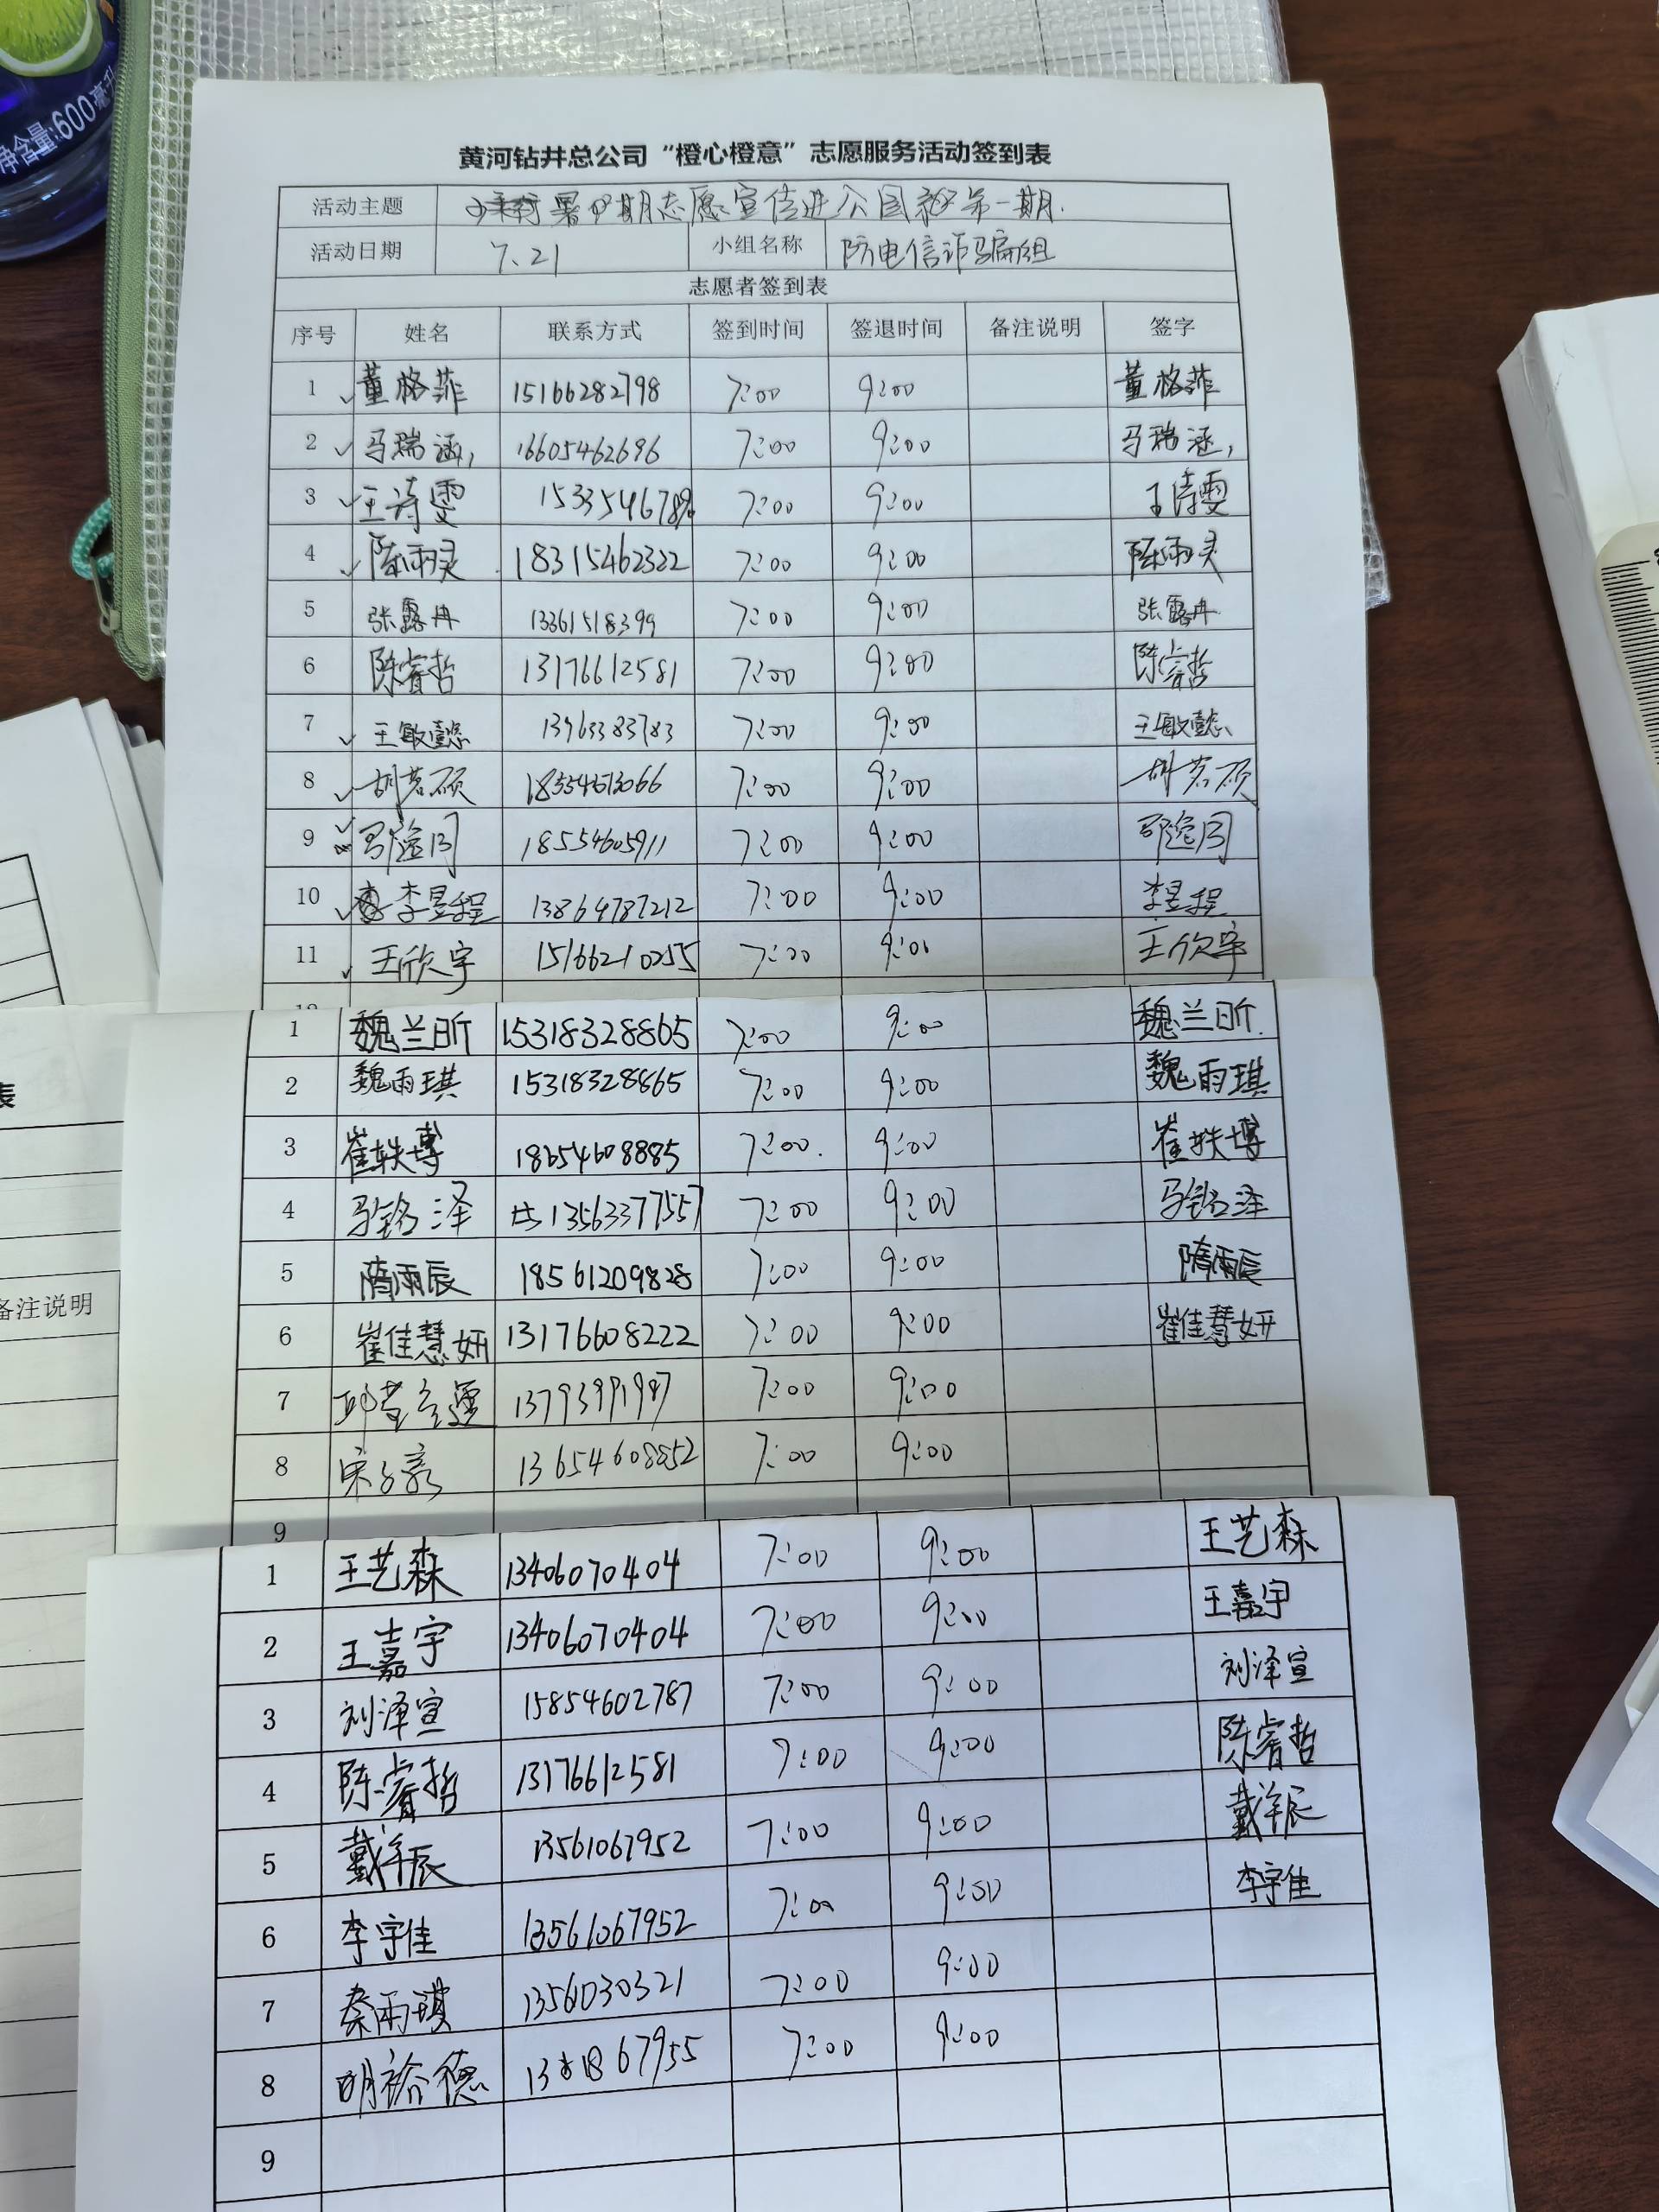 净含量:600毫升
黄河钻井总公司“橙心橙意”志愿服务活动签到表
活动主题 暑期志愿宣传进公园 第一期.
活动日期 7.21 小组名称 防电信诈骗组
志愿者签到表
序号 姓名 联系方式 签到时间 签退时间 备注说明 签字
1 董格菲 15166282798 7:00 9:00 董格菲
2 马瑞涵, 16605462696 7:00 9:00 马瑞涵,
3 王诗雯 7:00 9:00 王诗雯
4 陈雨灵 18315462322 7:00 9:00 陈雨灵
5 张露丹 13361518399 7:00 9:00 张露丹
6 陈睿哲 13176612581 7:00 9:00 陈睿哲
7 王敏懿 13963383783 7:00 9:00 王敏懿
8 胡若硕 18554613066 7:00 9:00 胡若硕
9 18554605911 7:00 9:00
10 李昱程 13864787212 7:00 9:00 李昱程
11 王欣宇 15166210255 7:00 9:00 王欣宇
1 魏兰昕 15318328865 7:00 9:00 魏兰昕.
2 魏雨琪 15318328865 7:00 9:00 魏雨琪
3 崔轶博 18654608885 7:00. 9:00 崔轶博
4 马铭泽 13563377557 7:00 9:00 马铭泽
5 隋雨辰 18561209828 7:00 9:00 隋雨辰
6 崔佳慧妍 13176608222 7:00 9:00 崔佳慧妍
7 7:00 9:00
8 13654608852 7:00 9:00
9
1 王艺森 13406070404 7:00 9:00 王艺森
2 王嘉宇 13406070404 7:00 9:00 王嘉宇
3 刘泽宣 15854602787 7:00 9:00 刘泽宣
4 陈睿哲 13176612581 7:00 9:00 陈睿哲
5 戴宇辰 13561067952 7:00 9:00 戴宇辰
6 李宇佳 13561067952 7:00 9:00 李宇佳
7 秦雨琪 7:00 9:00
8 明裕德 7:00 9:00
9
表
备注说明